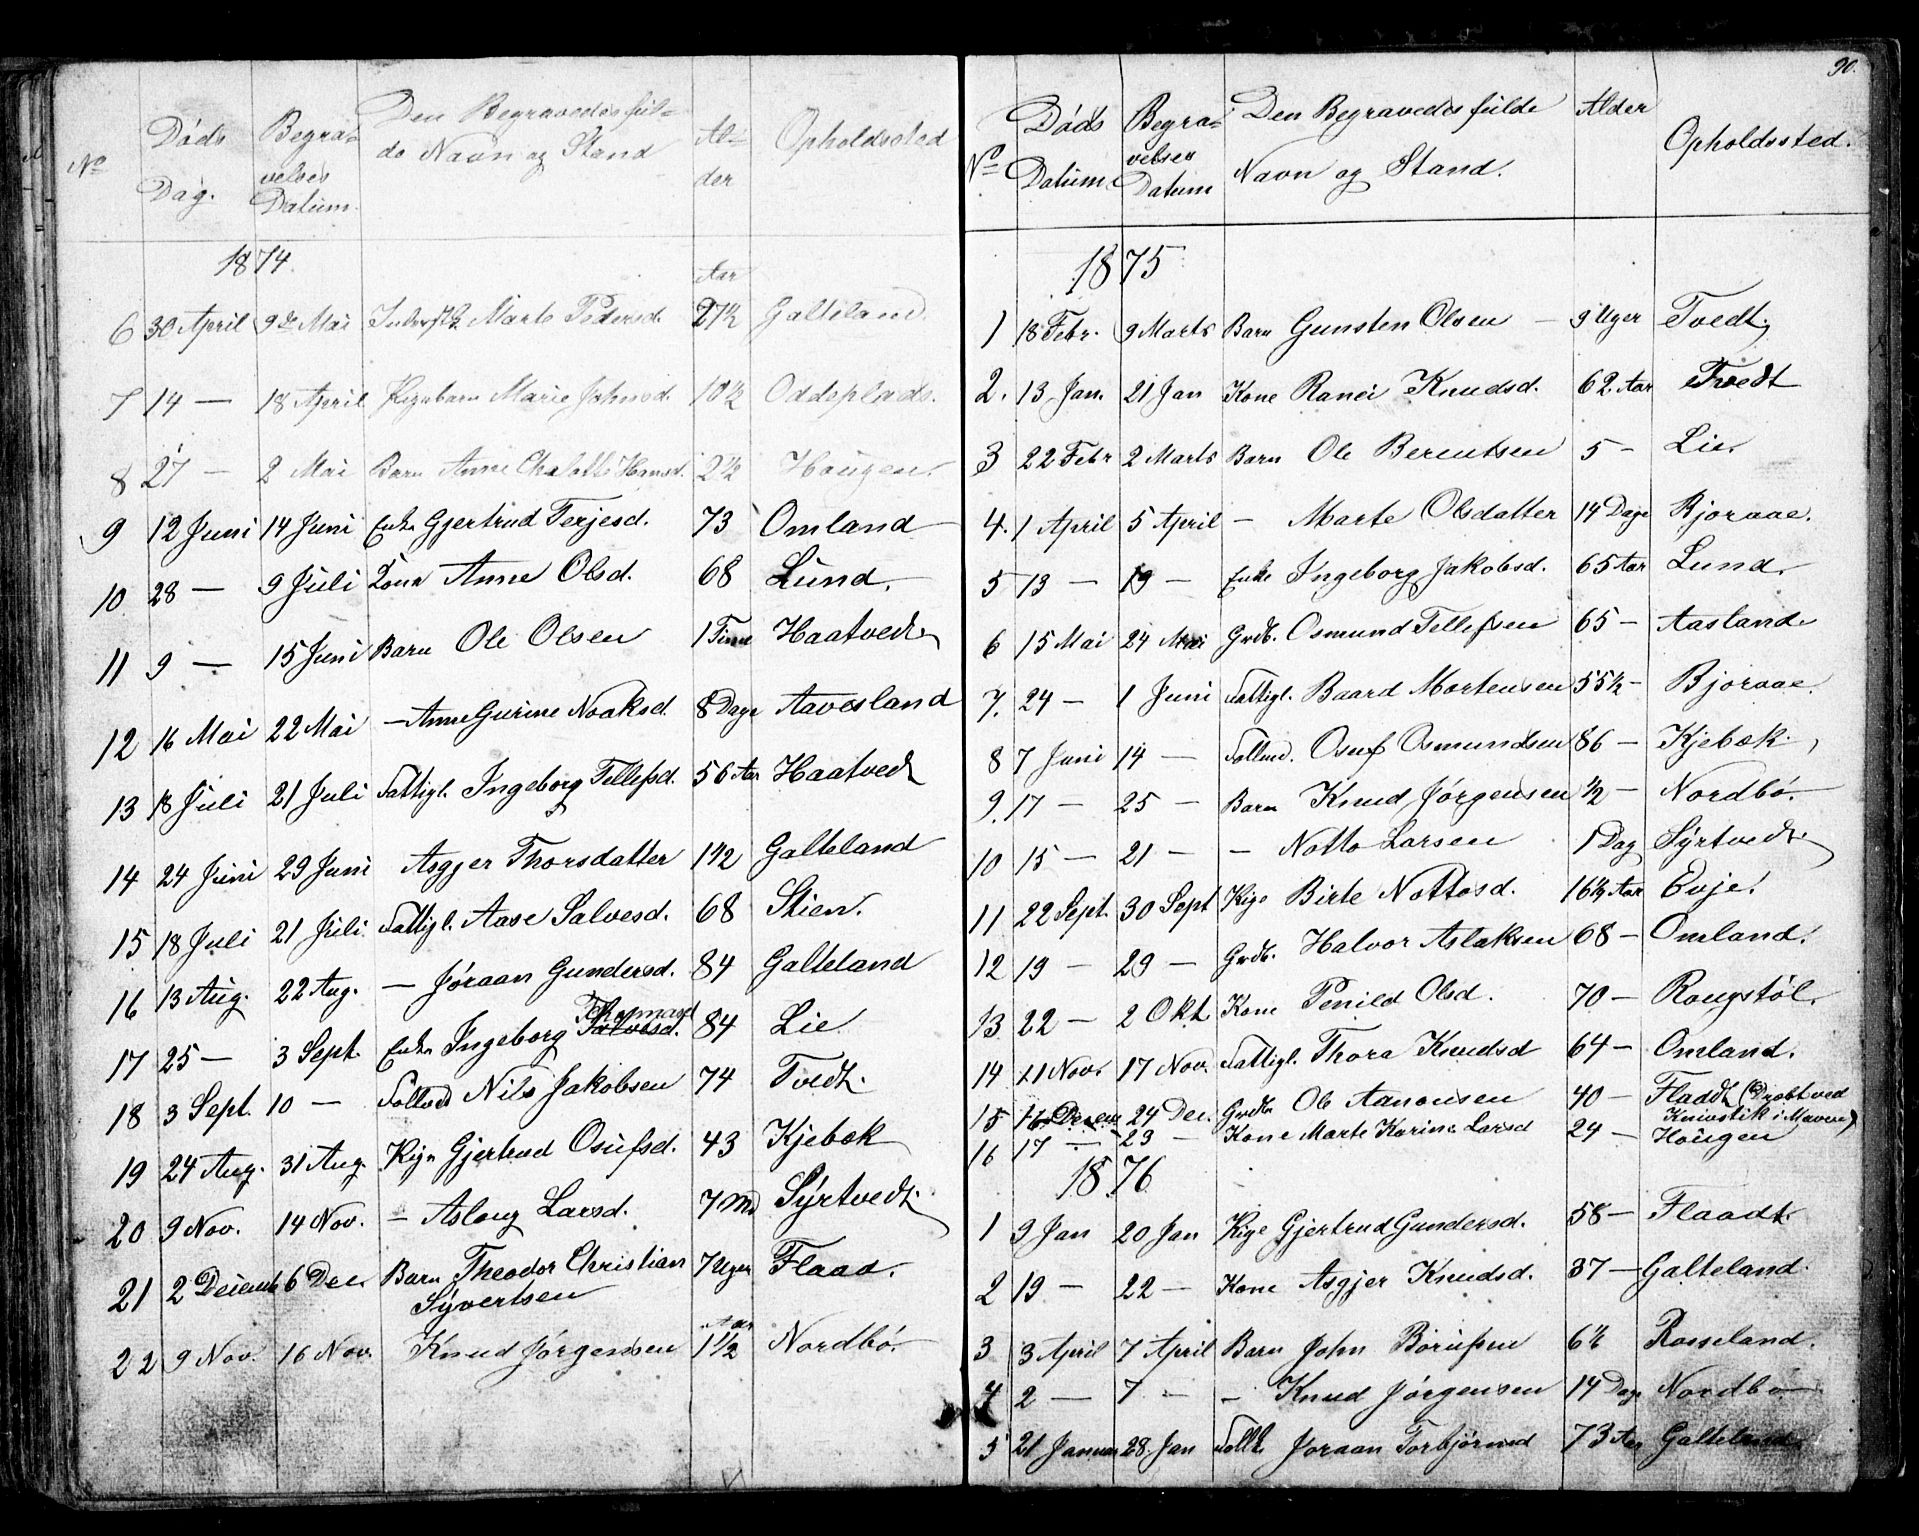 No Døds Dag. Begravelses Datum. Den Begravedes fulde Navn og Stand Alder Opholdssted
1874.
Aar
6 30 April 9de Mai Marte Pedersd. 27½ Galteland.
7 14 — 18 April Pigebarn Marie Johnsd. 10½ Oddeplads.
8 27 — 2 Mai Barn Anne Chalotte Hansd. 2½ Haugen.
9 12 Juni 14 Juni Enke Gjertrud Terjesd. 73 Omland
10 28 — 9 Juli Kone Anne Olsd. 68 Lund.
11 9 — 15 Juni Barn Ole Olsen 1 Time Haatvedt
12 16 Mai 22 Mai — Anne Gurine Noaksd. 8 Dage Aavesland
13 18 Juli 21 Juli Fattigl. Ingeborg Tellefsd. 56 Aar Haatvedt
14 24 Juni 29 Juni Asgjer Thorsdatter 1½ Galteland
15 18 Juli 21 Juli Fattigl. Aase Salvesd. 68 Stien.
16 13 Aug. 22 Aug. — Jøraan Gundersd. 84 Galteland
Thormosd
17 25 — 3 Sept. Enke Ingeborg Salvesd. 84 Lie
18 3 Sept. 10 — Follvd Nils Jakobsen 74 Tvedt.
19 24 Aug. 31 Aug. Pige Gjertrud Osufsd. 43 Kjebæk
20 9 Nov. 14 Nov. — Aslaug Larsd. 7 Md Syrtvedt.
21 2 Decemb 6 Dec. Barn Theodor Christian 7 Uger Flaad.
Syvertsen
Aar
22 9 Nov. 16 Nov. Knud Jørgensen 1½ Nordbø.
90.
No Døds Datum. Begravelses Datum Den Begravedes fulde Navn og Stand. Alder Opholdssted.
1875
1 18 Febr. 9 Marts Barn Gunsten Olsen — 9 Uger Tvedt
2. 13 Jan. 21 Jan Kone Ranei Knudsd. 62 Aar Tvedt
3 22 Febr 2 Marts Barn Ole Berentsen 5 — Lie.
4. 1 April 5 April — Marte Olsdatter 14 Dage Bjoraae.
5 13 — 19 — Enke Ingeborg Jakobsd. 65 Aar Lund.
6 15 Mai 24 Mai Grdb. Osmund Tellefsen 65 — Aasland
7. 24 — 1 Juni Fattigl. Baard Mortensen 55½ — Bjoraae.
8 7 Juni 14 — Follmd. Osuf Osmundsen 86 — Kjebæk
9. 17 — 25 — Barn Knud Jørgensen ½ — Nordbø.
10 15 — 21 — — Notto Larsen 1 Dag Syrtvedt
11 22 Sept. 30 Sept Pige Birte Nottosd. 16½ Aar Evje.
12 19 — 29 — Grdb. Halvor Aslaksen 68 — Omland.
13 22 — 2 Okt. Kone Penild Olsd. 70 — Rougstøl.
14 11 Nov. 17 Nov. Fattigl. Thora Knudsd 64 — Omland.
15 16 Decem 24 Dec. Grdb Ole Aanonsen 40 — Fladdt (Dræbt ved
Knivstik i Maven)
16 17 — 23 — Kone Marte Karine Larsd 29 — Haugen
1876
1 9 Jan 20 Jan Pige Gjertrud Gundersd. 58 — Flaadt
2 19 — 22 — Kone Asgjer Knudsd. 37 — Galteland.
3 3 April 7 April Barn John Borufsen 6½ Rosseland.
4 2 — 7 — — Knud Jørgensen 14 Dage Nordbø
5 21 Januar 28. Jan Jøraan Torbjørnsd 73 Aar Galteland.